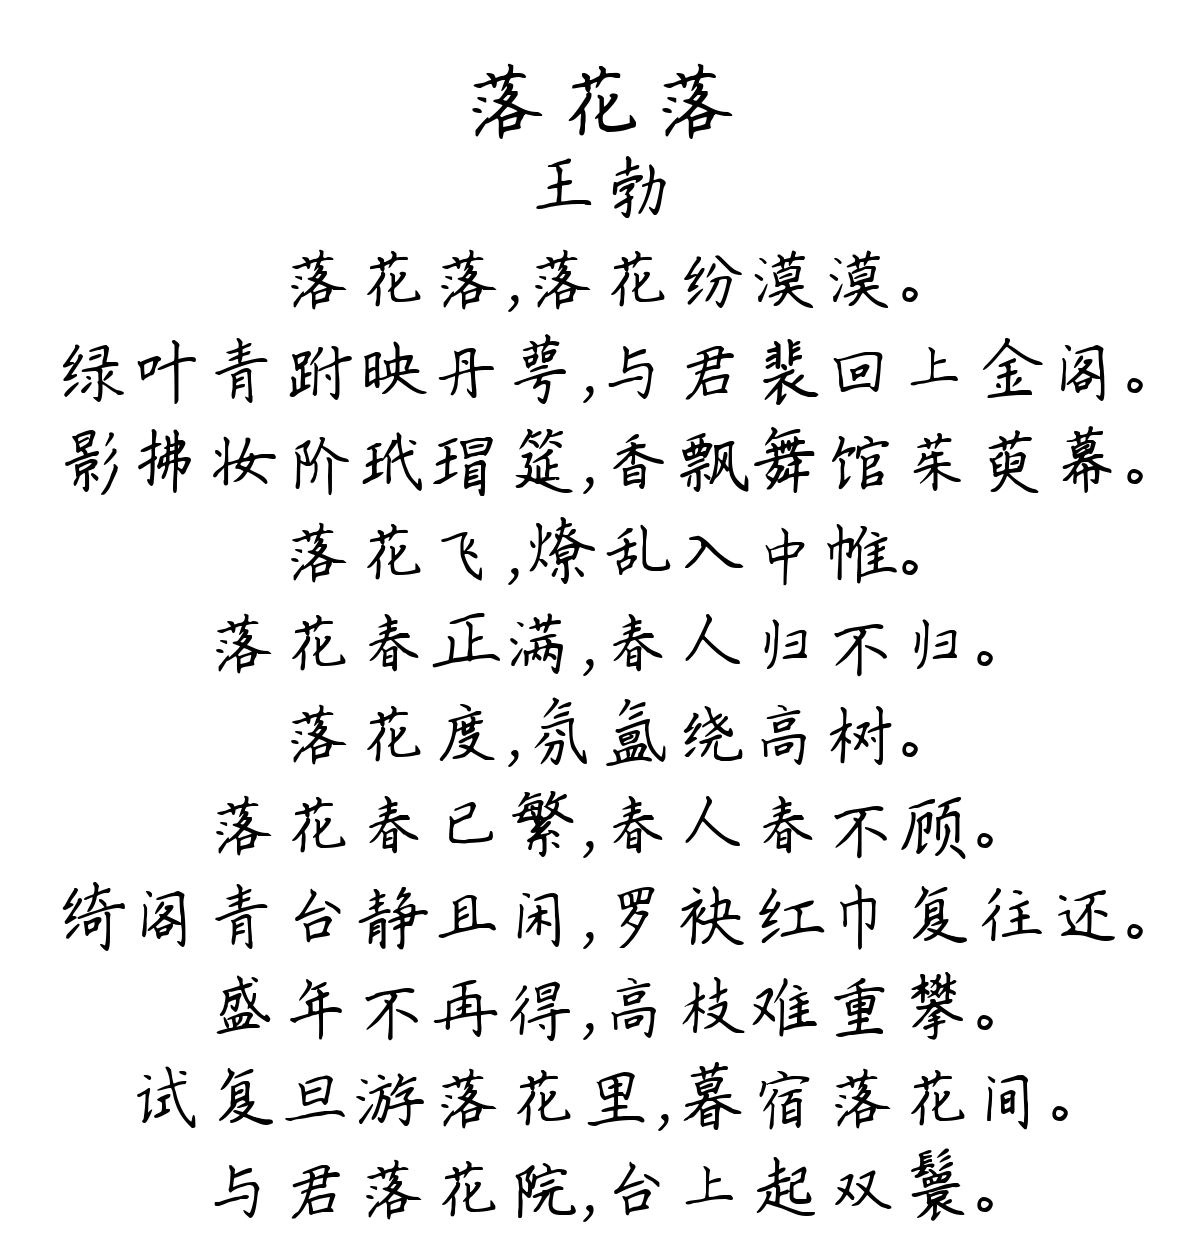 落花落
王勃
落花落,落花纷漠漠。
绿叶青跗映丹萼,与君裴回上金阁。
影拂妆阶玳瑁筵,香飘舞馆茱萸幕。
落花飞,燎乱入中帷。
落花春正满,春人归不归。
落花度,氛氲绕高树。
落花春已繁,春人春不顾。
绮阁青台静且闲,罗袂红巾复往还。
盛年不再得,高枝难重攀。
试复旦游落花里,暮宿落花间。
与君落花院,台上起双鬟。